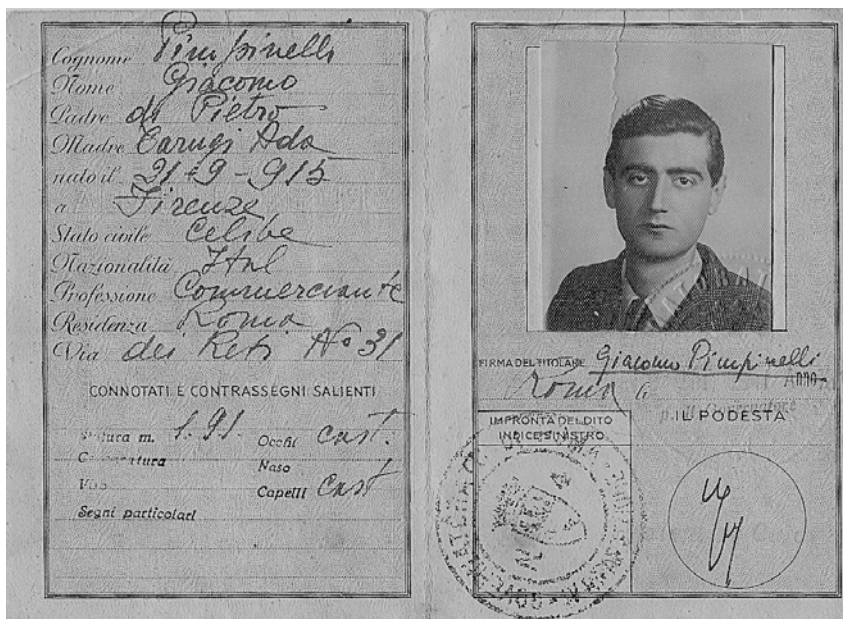 Cognome Pimpinelli
Nome Giacomo
Padre di Pietro
Madre Carugi Ada
nato il 21-9-915
a Firenze
Stato civile Celibe
Nazionalità Ital
Professione Commerciante
Residenza Roma
Via dei Reti No 31
CONNOTATI E CONTRASSEGNI SALIENTI
Statura m. 1.91.
Occhi cast.
Naso
Capelli Cast
Segni particolari
FIRMA DEL TITOLARE Giacomo Pimpinelli
Roma
p. Il Governatore
IL PODESTÀ
IMPRONTA DEL DITO
INDICE SINISTRO